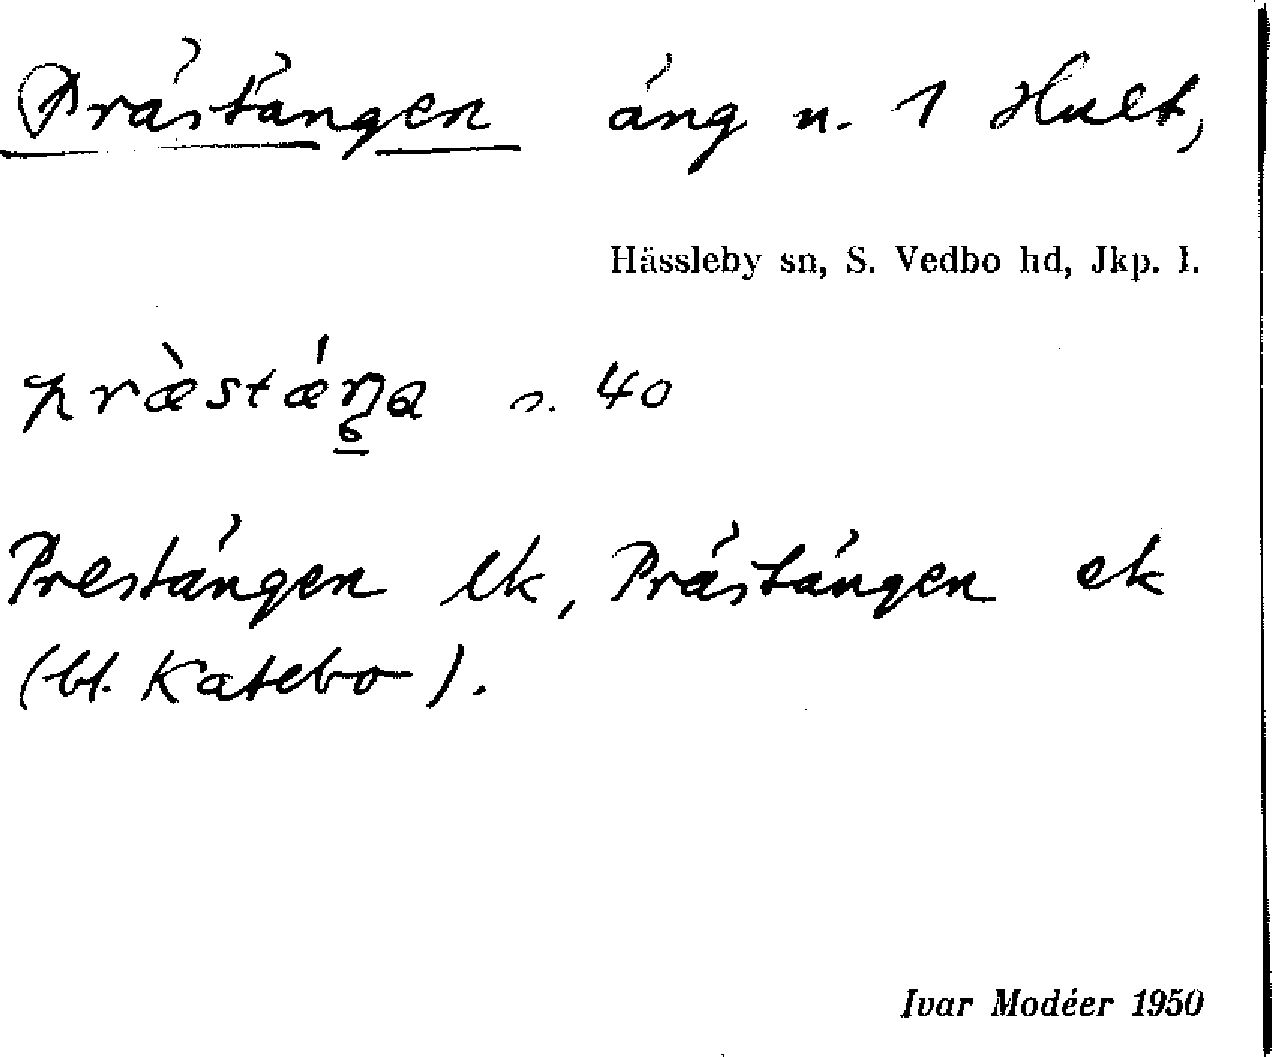 Prästängen äng n. 1 Hult,
Hässleby sn, S. Vedbo hd, Jkp. l.
præ̀stǽŋa s. 40
Prestängen lk, Prästängen ek
(bl. Katebo).
Ivar Modéer 1950